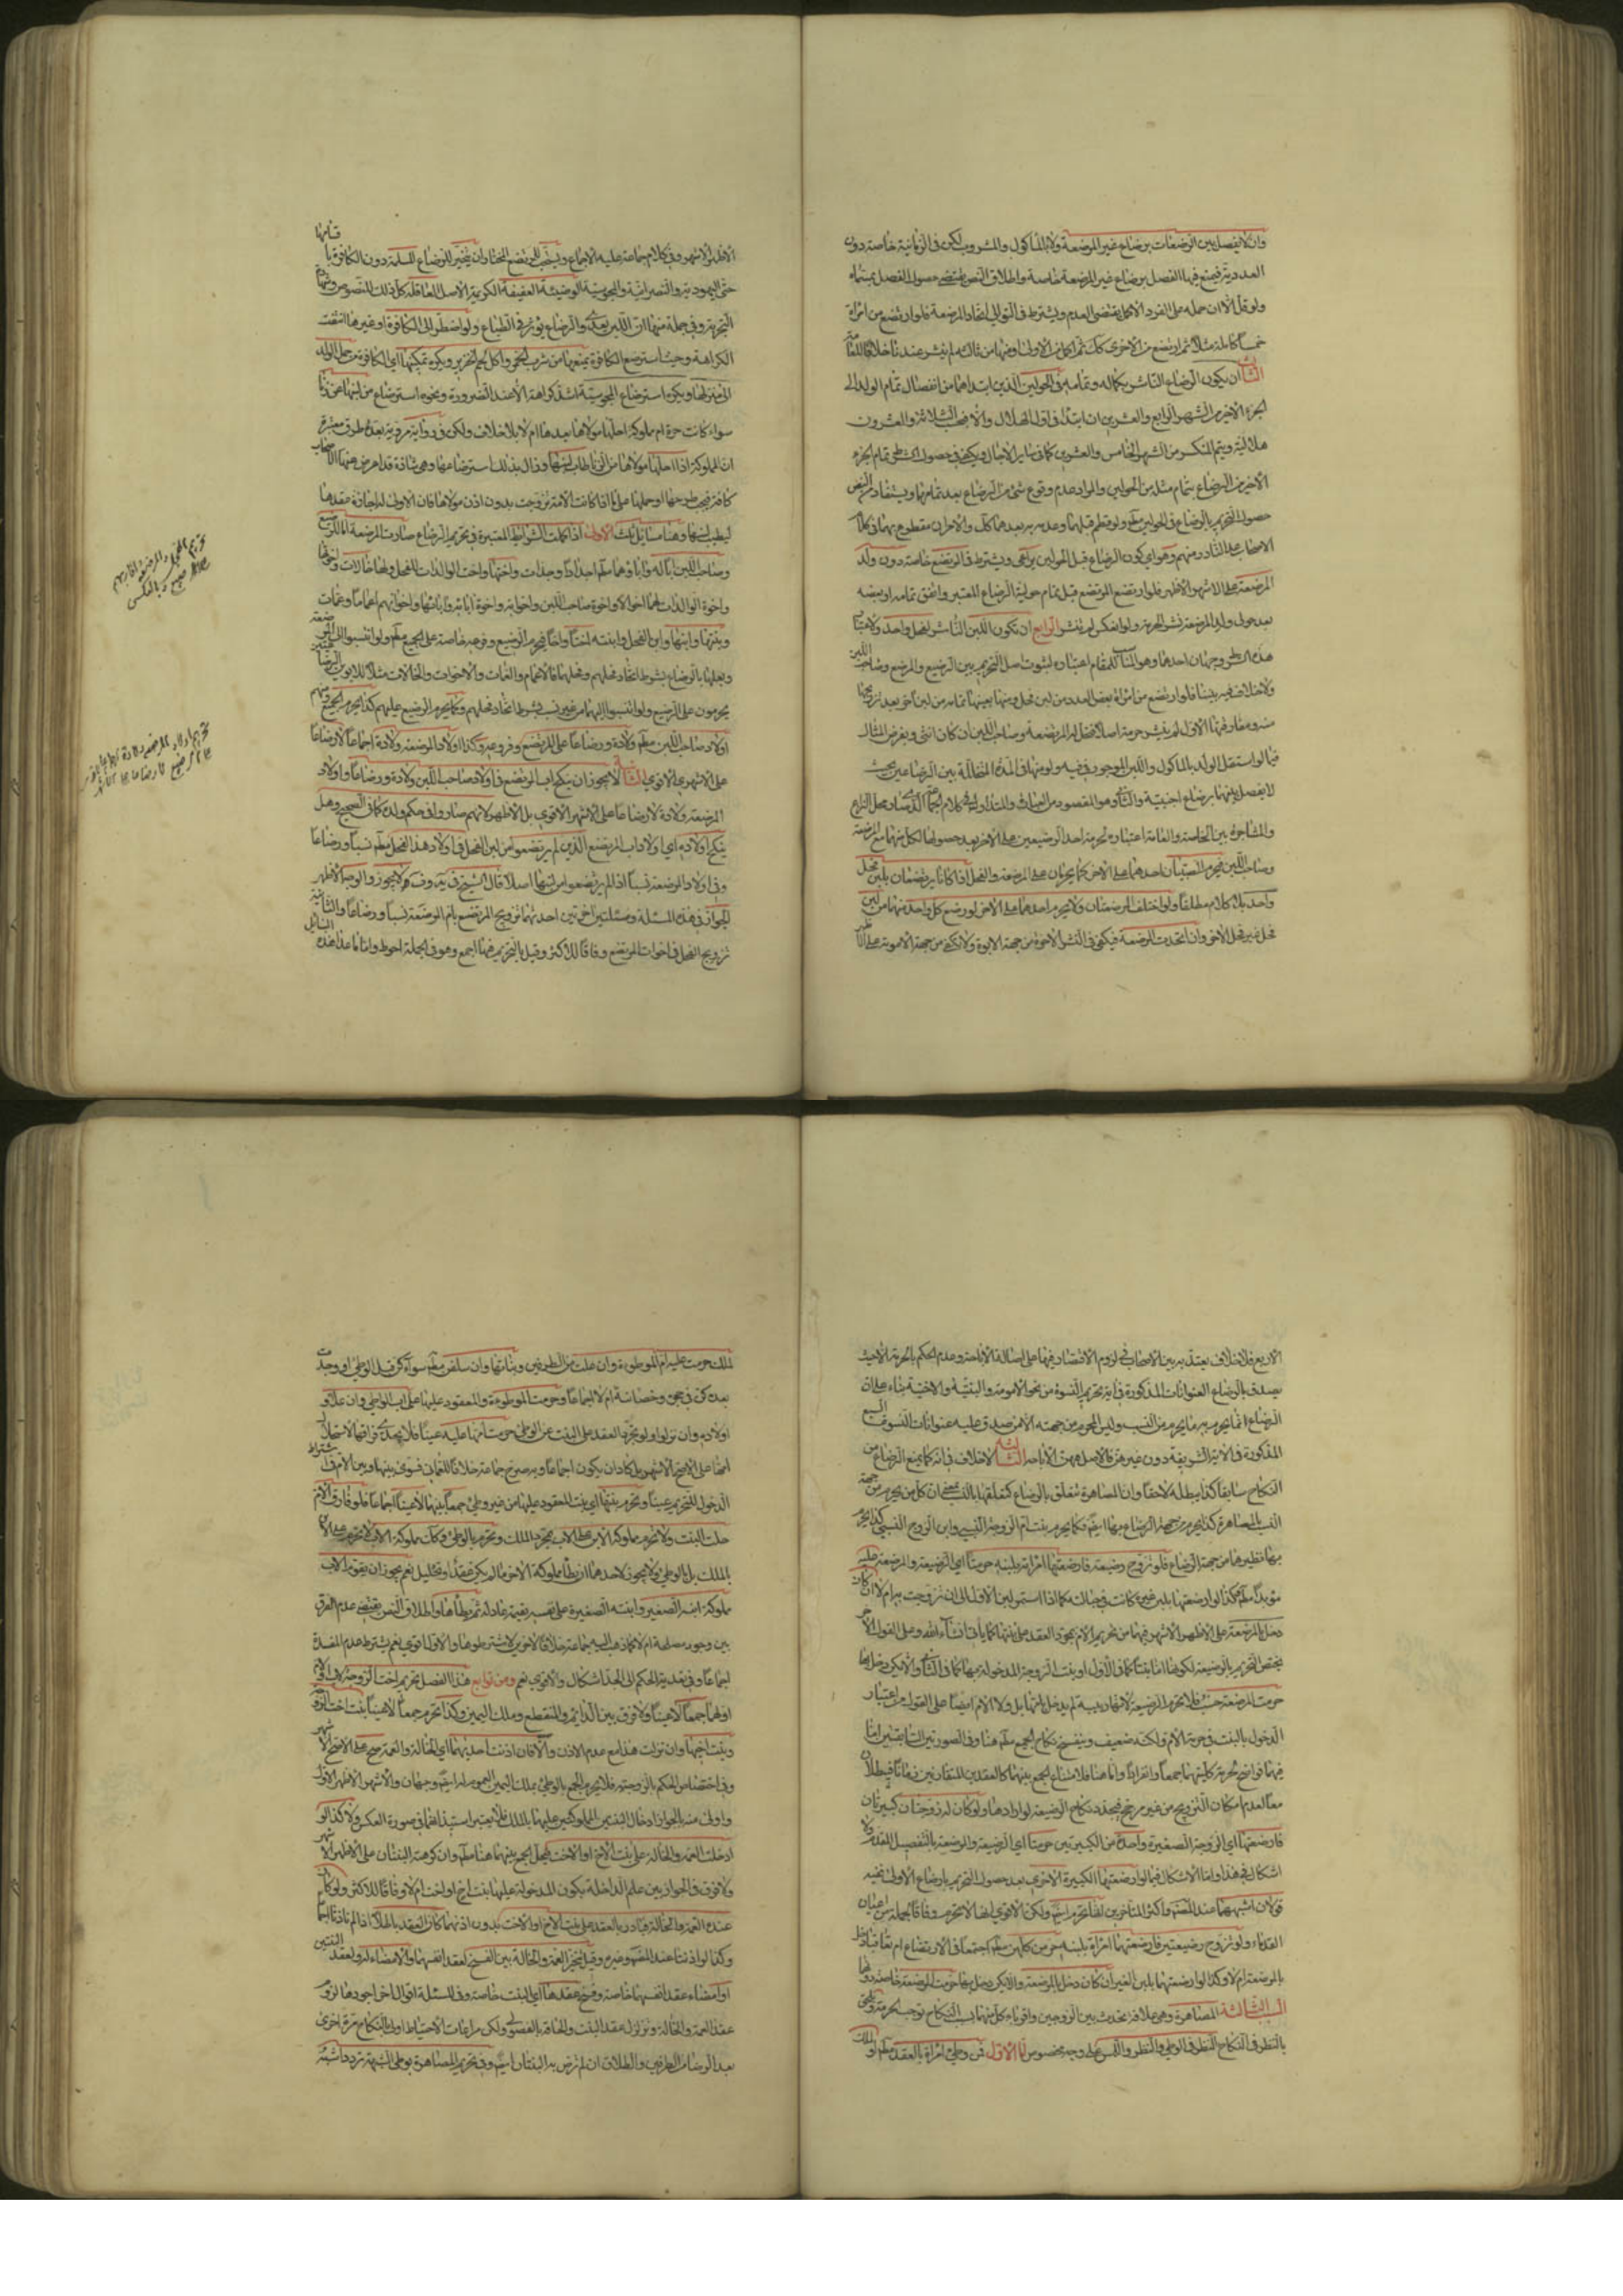 وان لا يفصل بين الرضعات برضاع غير المرضعة ولا المأكول والمشروب لكن في الزمانية خاصة دون
العددية فيمنع فيها الفصل برضاع غير المرضعة خاصة واطلاق النص يقتضي حصول الفصل بمسماه
ولو قل الا ان حمله على الفرد الاكمل يقتضي العدم ويشترط في التوالي اتحاد المرضعة فلو ارتضع من امرأة
خمسا كاملة مثلا ثم ارتضع من الاخرى كك ثم اكمل من الاولى او منهما من ثالثة لم ينشر عندنا خلافا للعامة
الثالث ان يكون الرضاع الناشر بكماله وتمامه في الحولين الذين ابتداهما من انفصال تمام الولد الى
الجزء الاخير من الشهر الرابع والعشرين ان ابتدا في اول الهلال والا فيحسب الثلاثة والعشرون
هلالية ويتم المنكسر من الشهر الخامس والعشرين كما في ساير الاجال ويكفي في حصول الشرط تمام الجزء
الاخير من الرضاع بتمام مثله من الحولين والمراد عدم وقوع شيء من الرضاع بعد تمامها ويستفاد من النص
حصول التحريم بالرضاع في الحولين مطم ولو فطم قبلهما وعدمه به بعدهما كك والامران مقطوع بهما في كلام
الاصحاب على النادر منهم وهو اي كون الرضاع قبل الحولين يراعى ويشترط في المرتضع خاصة دون ولد
المرضعة على الاشهر الاظهر فلو ارتضع المرتضع قبل تمام حوليه الرضاع المعتبر واتفق تمامه او بعضه
بعد حولي ولد المرضعة نشر الحرمة ولو انعكس لم ينشر الرابع ان يكون اللبن الناشر لفحل واحد ولاعتبار
هذه الشرط وجهان احدهما وهو المناسب للمقام اعتباره لثبوت اصل التحريم بين الرضيع والمرضع وصاحب اللبن
ولا خلاف فيه بيننا فلو ارتضع من امرأة بعض العدد من لبن فحل ومنها بعينها تمامه من لبن اخر بعد تزويجها
منه ومفارقتها الاول لم ينشر حرمة اصلا
فيما لو استقل الولد بالمأكول واللبن الموجود في فيه ولو منهما في المدة المتخللة بين الرضاعين بحيث
لا يفصل بينهما برضاع اجنبية والثاني وهو المقصود من العبارة والمتداول في كلام الجماعة
والمشاجرة بين الخاصة والعامة اعتباره لحرمة احد الرضيعين على الاخر بعد حصولها لكل منهما مع المرضعة
وصاحب اللبن فيحرم الصبيان احدهما على الاخر كما يحرمان على المرضعة والفحل اذا كانا يرتضعان بلبن فحل
واحد بلا كلام مطلقا ولو اختلف المرضعتان ولا يحرم احدهما على الاخر لو رضع كل واحد منهما من لبن
فحل غير فحل الاخر وان اتحدت المرضعة فيكفي في النشر الاخوة من جهة الابوة ولا يكفي من جهة الامومة على
الاظهر الاشهر وفي كلام جماعة عليه الاجماع ويستحب للمرتضع المختار ان يتخير للرضاع المسلمة دون الكافرة
حتى اليهودية والنصرانية والمجوسية الوضيئة العفيفة الكريمة الاصل العاقلة كل ذلك للنصوص
التجربة وفي جملة منها ان اللبن يعدي والرضاع يؤثر في الطباع ولو اضطر الى الكافرة او غيرها انتفت
الكراهة وحيث استرضع الكافرة يمنعها من شرب الخمر واكل لحم الخنزير ويكره تمكينها اي الكافرة من حمل الولد
الى منزلها ويكره استرضاع المجوسية اشد كراهة الا عند الضرورة ونحوه استرضاع من لبنها عن زنا
سواء كانت حرة ام مملوكة احلها مولاها بعدها ام لا بلا خلاف ولكن في رواية مروية بعدة طرق معتبرة
ان المملوكة اذا احلها مولاها من الزنا طاب لبنها وزال بذلك استرضاعها وهي شاذة قد اعرض عنها الاصحاب
كافة فيجب طرحها او حملها على ما اذا كانت الامة تزوجت بدون اذن مولاها فان الاولى له اجازة عقدها
ليطيب لبنها وهنا مسائل ثلث الاولى اذا اكملت الشرائط المعتبرة في تحريم الرضاع صارت المرضعة اما للرضيع
وصاحب اللبن ابا له واباؤهما مطم اجدادا وجدات واختها واخت الوالدات للفحل ولها خالات
واخوة الوالدات لهما اخوالا واخوة صاحب اللبن واخواته واخوة ابائه وابائها واخواتهم اعماما وعمات
وبنتها وابنها وابن الفحل وابنته اختا واخا فيحرم الرضيع وفروعه خاصة على الجميع مطم ولو انتسبوا الى المرضعة
وبعلها بالرضاع بشرط اتحاد فحلهم وفحلهما فالاعمام والعمات والاخوات والخالات مثلا للابوين من الرضاع
يحرمون على الرضيع ولو انتسبوا اليهما من غير نسب بشرط اتحاد فحلهم وكما يحرم الرضيع عليهم كذا يحرم الجميع
اولاد صاحب اللبن مطم ولادة ورضاعا على المرتضع وفروعه وكذا اولاد المرضعة ولادة اجماعا لا رضاعا
على الاشهر الاقوى الثانية لا يجوز ان ينكح اب المرتضع في اولاد صاحب اللبن ولادة ورضاعا واولاد
المرضعة ولادة لا رضاعا على الاشهر الاقوى بل الاظهر لانهم صاروا في حكم ولده كما في الصحيح وهل
ينكح اولاده اي اولاد اب المرتضع الذين لم يرتضعوا من لبن الفحل في اولاد هذا الفحل مطم نسبا ورضاعا
وفي اولاد المرضعة نسبا اذا لم يرتضعوا من لبنها اصلا قال الشيخ في ية وف لا يجوز والوجه الاظهر
الجواز في هذه المسئلة ومسئلتين اخريين احديهما تزويج المرتضع بام المرضعة نسبا ورضاعا والثانية
تزويج الفحل في اخوات المرتضع وفاقا للاكثر وقيل بالتحريم فيهما اجمع وهو في الجملة احوط واما ما عدا هذه
الاربع فلا خلاف يعتد به بين الاصحاب في لزوم الاقتصار فيها على اصالة الاباحة وعدم الحكم بالحرمة الا حيث
يصدق بالرضاع العنوانات المذكورة في اية تحريم النسوة من نحو الامومة والبنتية والاختية بناء على ان
الرضاع انما يحرم به ما يحرم من النسب وليس المحرم من جهته الا من صدق عليه عنوانات النسوة السبع
المذكورة في الاية الشريفة دون غيرهن فالاصل فيهن الاباحة الثالثة لا خلاف في انه كما يمنع الرضاع من
النكاح سابقا كذا يبطله لاحقا وان المصاهرة تتعلق بالرضاع كتعلقها بالنسب بمعنى ان كل من يحرم من جهة
النسب بالمصاهرة كذا يحرم من جهة الرضاع بها ايضا فكما يحرم بنت ام الزوجة النسبي وابن الزوج النسبي كذا يحرم
بها نظيرهما من جهة الرضاع فلو تزوج رضيعة فارضعتها امرأته بلبنه حرمتا اي الرضيعة والمرضعة عليه
مؤبدا مطم وكذا لو ارضعتها بلبن غيره كانت في حباله
دخل بالمرضعة على الاظهر الاشهر فيهما من تحريم الام بمجرد العقد على بنتها كما يأتي انشاء الله وعلى القول الاخر
يختص التحريم بالرضيعة لكونها اما بنتا كما في الاول او بنت الزوجة المدخولة بها كما في الثاني والا يكن دخل بها
حرمت المرضعة حسب فلا تحرم الرضيعة لانها ربيبة لم يدخل بامها بل ولا الام ايضا على القول باعتبار
الدخول بالبنت في حرمة الام ولكنه ضعيف وينفسخ نكاح الجميع مطم هنا وفي الصورتين السابقتين اما
فيهما فواضح لحرمة كلتيهما جمعا وانفرادا واما هنا فلامتناع الجمع بينهما كالعقدين المتقارنين زمانا فيبطلان
معا لعدم امكان الترجيح من غير مرجح فيجدد نكاح الرضيعة لو ارادها ولو كان له زوجتان كبيرتان
فارضعتها اي الزوجة الصغيرة واحدة من الكبيرتين حرمتا اي الرضيعة والمرضعة بالتفصيل المقدم ولا
اشكال في هذا وانما الاشكال فيما لو ارضعتها الكبيرة الاخرى بعد حصول التحريم بارضاع الاولى ففيه
قولان اشبههما عند المصنف واكثر المتاخرين انها تحرم ايضا ولكن الاقوى انها لا تحرم وفاقا لجملة من اعيان
القدماء ولو تزوج رضيعتين فارضعتهما امرأة بلبنه حرمن كلهن مطم اجتمعا في الارتضاع ام تعاقبا دخل
بالمرضعة ام لا وكذا لو ارضعتهما بلبن الغير ان كان دخل بالمرضعة والا يكن دخل بها حرمت المرضعة خاصة دونهما
السبب الثالث المصاهرة وهي علاقة تحدث بين الزوجين واقرباء كل منهما بسبب النكاح توجب الحرمة
بالنظر في النكاح النظر في الوطي والنظر واللمس على وجه مخصوص اما الاول فمن وطئ امرأة بالعقد مطم او الملك
الملك حرمت عليه ام الموطوءة وان علت من الطرفين وبناتها وان سفلن مطم سواء كن قبل الوطي او وجدت
بعده كن في حجره وحضانته ام لا اجماعا وحرمت الموطوءة والمعقود عليها على اب الواطي وان علا و
اولاده وان نزلوا ولو تجرد العقد على البنت عن الوطي حرمت امها عليه عينا
امها على الاصح الاشهر بل كاد ان يكون اجماعا وبه صرح جماعة خلافا للعماني فسوى بينها وبين الام في اشتراط
الدخول للتحريم عينا ويحرم بنتها اي بنت المعقود عليها من غير وطي جمعا بينهما لا عينا اجماعا فلو فارق الام
حلت البنت ولا تحرم مملوكة الابن على الاب بمجرد الملك وتحرم بالوطي وكذا مملوكة الاب لا تحرم على الابن
بالملك بل بالوطي ولا يجوز لاحدهما ان يطأ مملوكة الاخر ما لم يكن عقد او تحليل نعم يجوز ان يقوم الاب
مملوكة ابنه الصغير وابنته الصغيرة على نفسه بقيمة عادلة ثم يطأها واطلاق النص يقتضي عدم الفرق
بين وجود مصلحة ام لا كما ذهب اليه جماعة خلافا لاخرين
اجماعا وفي تعدية الحكم الى الجد اشكال والاقوى نعم ومن توابع هذا الفصل تحريم اخت الزوجة لاب او لام
او لهما جمعا لا عينا ولا فرق بين الدائم والمنقطع وملك اليمين وكذا تحرم جمعا لا عينا بنت اخت الزوجة
وبنت اخيها وان نزلت هذا مع عدم الاذن والا فان اذنت احديهما اي الخالة والعمة صح على الاصح الاشهر
وفي اختصاص الحكم بالزوجة فلا يحرم الجمع بالوطي بملك اليمين ام العموم له ايضا وجهان والاشهر الاظهر الاول
واولى منه بالجواز ادخال البنتين المملوكتين عليهما بالملك فلا يعتبر استيذانهما في صورة العكس ولا كذا لو
ادخلت العمة والخالة على بنت الاخ او الاخت فيحل الجمع بينهما هنا مطم وان كرهت البنتان على الاظهر الاشهر
ولا فرق في الجواز بين علم الداخلة بكون المدخولة عليها بنت اخ او اخت ام لا وفاقا للاكثر ولو كان
عنده العمة والخالة فبادر بالعقد على بنت الاخ او الاخت بدون اذنهما كان العقد باطلا اذا لم تاذنا
وكذا لو اذنتا عند المصنف وغيره وقيل يتخير العمة والخالة بين الفسخ لعقد انفسهما والامضاء له ولعقد البنتين
او امضاء عقد انفسهما خاصة وفسخ عقدها اي البنت خاصة وفي المسئلة اقوال اخر اجودها لزوم
عقد العمة والخالة وتزلزل عقد البنت والحاقه بالفضولي ولكن مراعات الاحتياط اولى بالنكاح مرة اخرى
بعد الرضا من الطرفين والطلاق ان لم ترض به البنتان ايضا وفي تحريم المصاهرة بوطي الشبهة تردد اشبهه